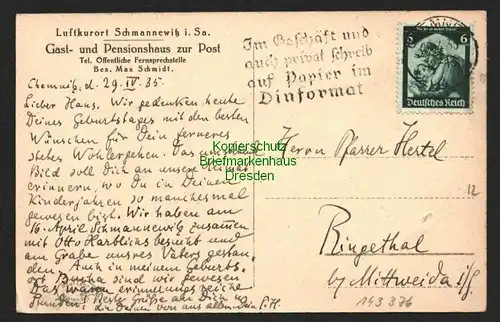 Luftkurort Schmannewitz i. Sa.
Gast- und Pensionshaus zur Post
Tel. Öffentliche Fernsprechstelle
Bes. Max Schmidt.
Chemnitz, d. 29. IV. 35.
Lieber Hans. Wir gedenken heute
Deines Geburtstages mit den besten
Wünschen für Dein ferneres
stetes Wohlergehen. Das
Bild soll Dich an unsre Heimat
erinnern, wo Du in Deinen
Kinderjahren so manchesmal
gewesen bist. Wir haben am
16. April Schmannewitz zusammen
mit Otto besucht und
am Grabe unsres Vaters gestan-
den. Auch in meinem Geburts-
ort sind wir gewesen
Das waren erinnerungsreiche
Stunden! Beste Grüße an Dich u.
die Deinen von uns allen. Dein
Im Geschäft und
auch privat schreib
auf Papier im
Dinformat
6
6
Deutsches Reich
Herrn Pfarrer Hertel
Ringethal
by Mittweida i/S.
12
143 336
Kopierschutz
Briefmarkenhaus
Dresden